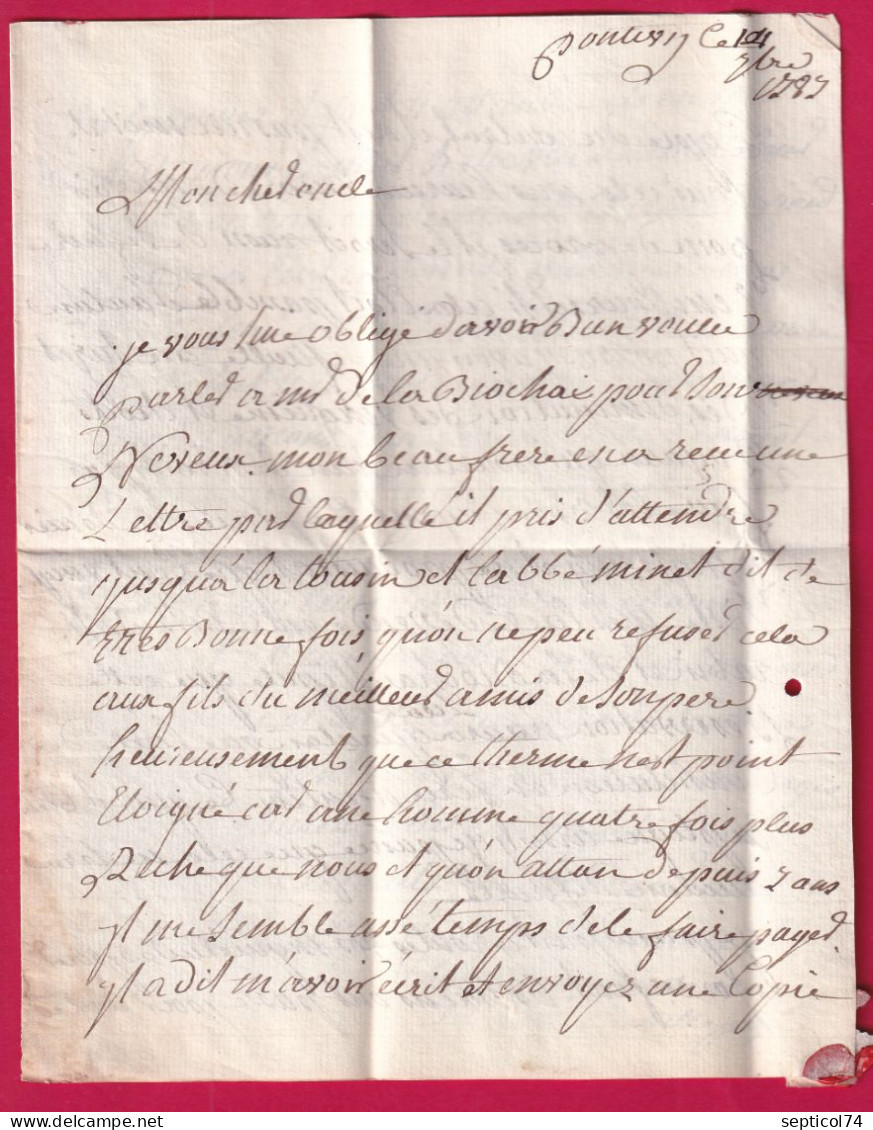 pontivy Ce 14
7bre
1787
Mon cher oncle
je vous suis oblige d'avoir Bien voulu
parler a mr de la Biochaix pour son
Neveux. mon beau frere en a recu une
Lettre par laquelle il pris d'attendre
jusqu'a la tousin et l'abbé minet dit de
tres Bonne fois qu'on ne peu refuser cela
aux fils du meilleur amis de son pere.
heureusement que ce therme n'est point
Eloigné car une homme quatre fois plus
Riche que nous et qu'on attan depuis 2 ans
yl me semble assé temps de le faire payer.
yl a dit m'avoir écrit et envoyez une Copie
septicol74